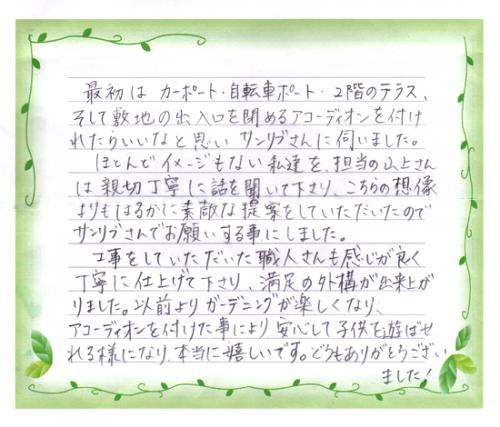 最初は カーポート・自転車ポート・2階のテラス、
そして敷地の出入口を閉めるアコーディオンを付け
れたらいいなと思い サンリブさんに伺いました。
ほとんどイメージもない私達を、担当の山上さん
は親切丁寧に話を聞いて下さり、こちらの想像
よりもはるかに素敵な提案をしていただいたので
サンリブさんでお願いする事にしました。
工事をしていただいた職人さんも感じが良く
丁寧に仕上げて下さり、満足の外構が出来上が
りました。以前よりガーデニングが楽しくなり、
アコーディオンを付けた事により安心して子供を遊ばせ
れる様になり、本当に嬉しいです。どうもありがとうござい
ました!